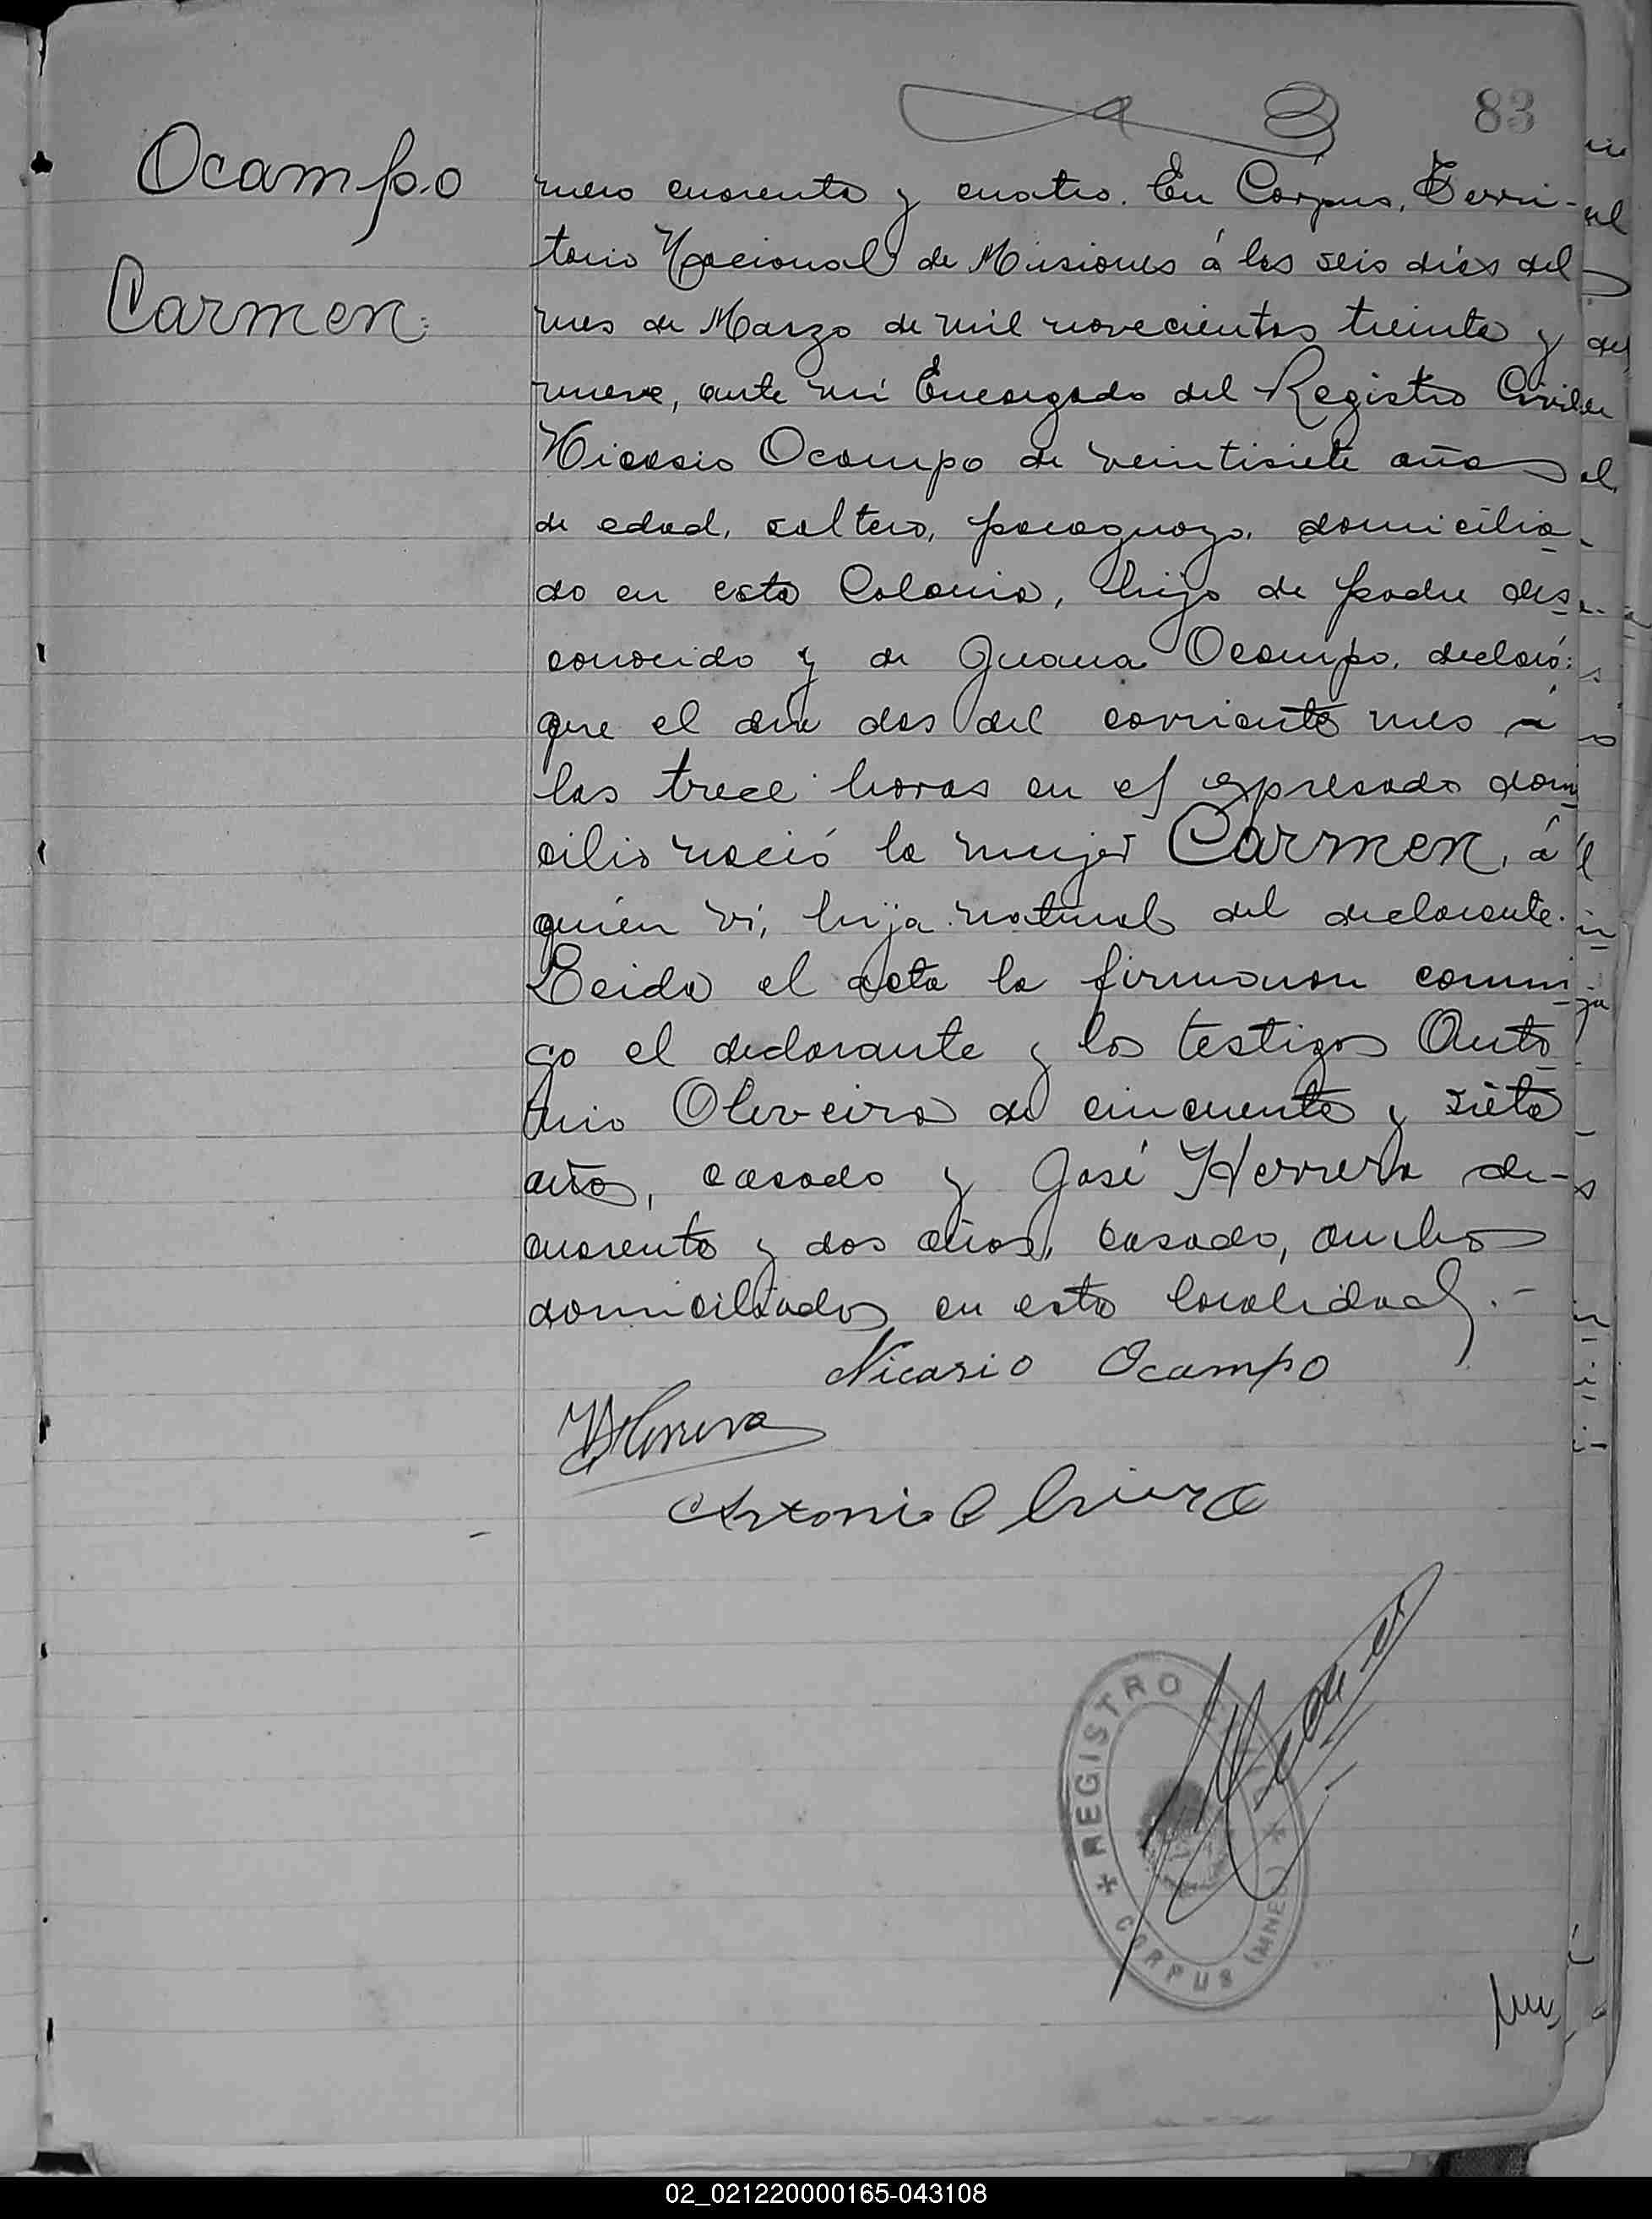 83
Ocampo
Carmen.
mero cuarenta y cuatro. En Córpus, Terri-
torio Nacional de Misiones á los seis días del
mes de Marzo de mil novecientos treinta y
nueve, ante mí Encargado del Registro Civil
Nicasio Ocampo de veintisiete años
de edad, soltero, paraguayo, domicilia
do en esta Colonia, hijo de padre des
conocido y de Juana Ocampo, declaró:
que el día dos del corriente mes á
las trece horas en el expresado domi
cilio nació la mujer Carmen, á
quien vi, hija natural del declarante.
Leida el acta la firmaron conmi
go el declarante y los testigos Anto
nio Oliveira de cincuenta y siete
años, casado y José Herrera de
cuarenta y dos años, casado, ambos
domiciliados en esta localidad.-
Nicasio Ocampo
Herrera
Antonio Oliveira
REGISTRO
CORPUS (MNES)
02_021220000165-043108